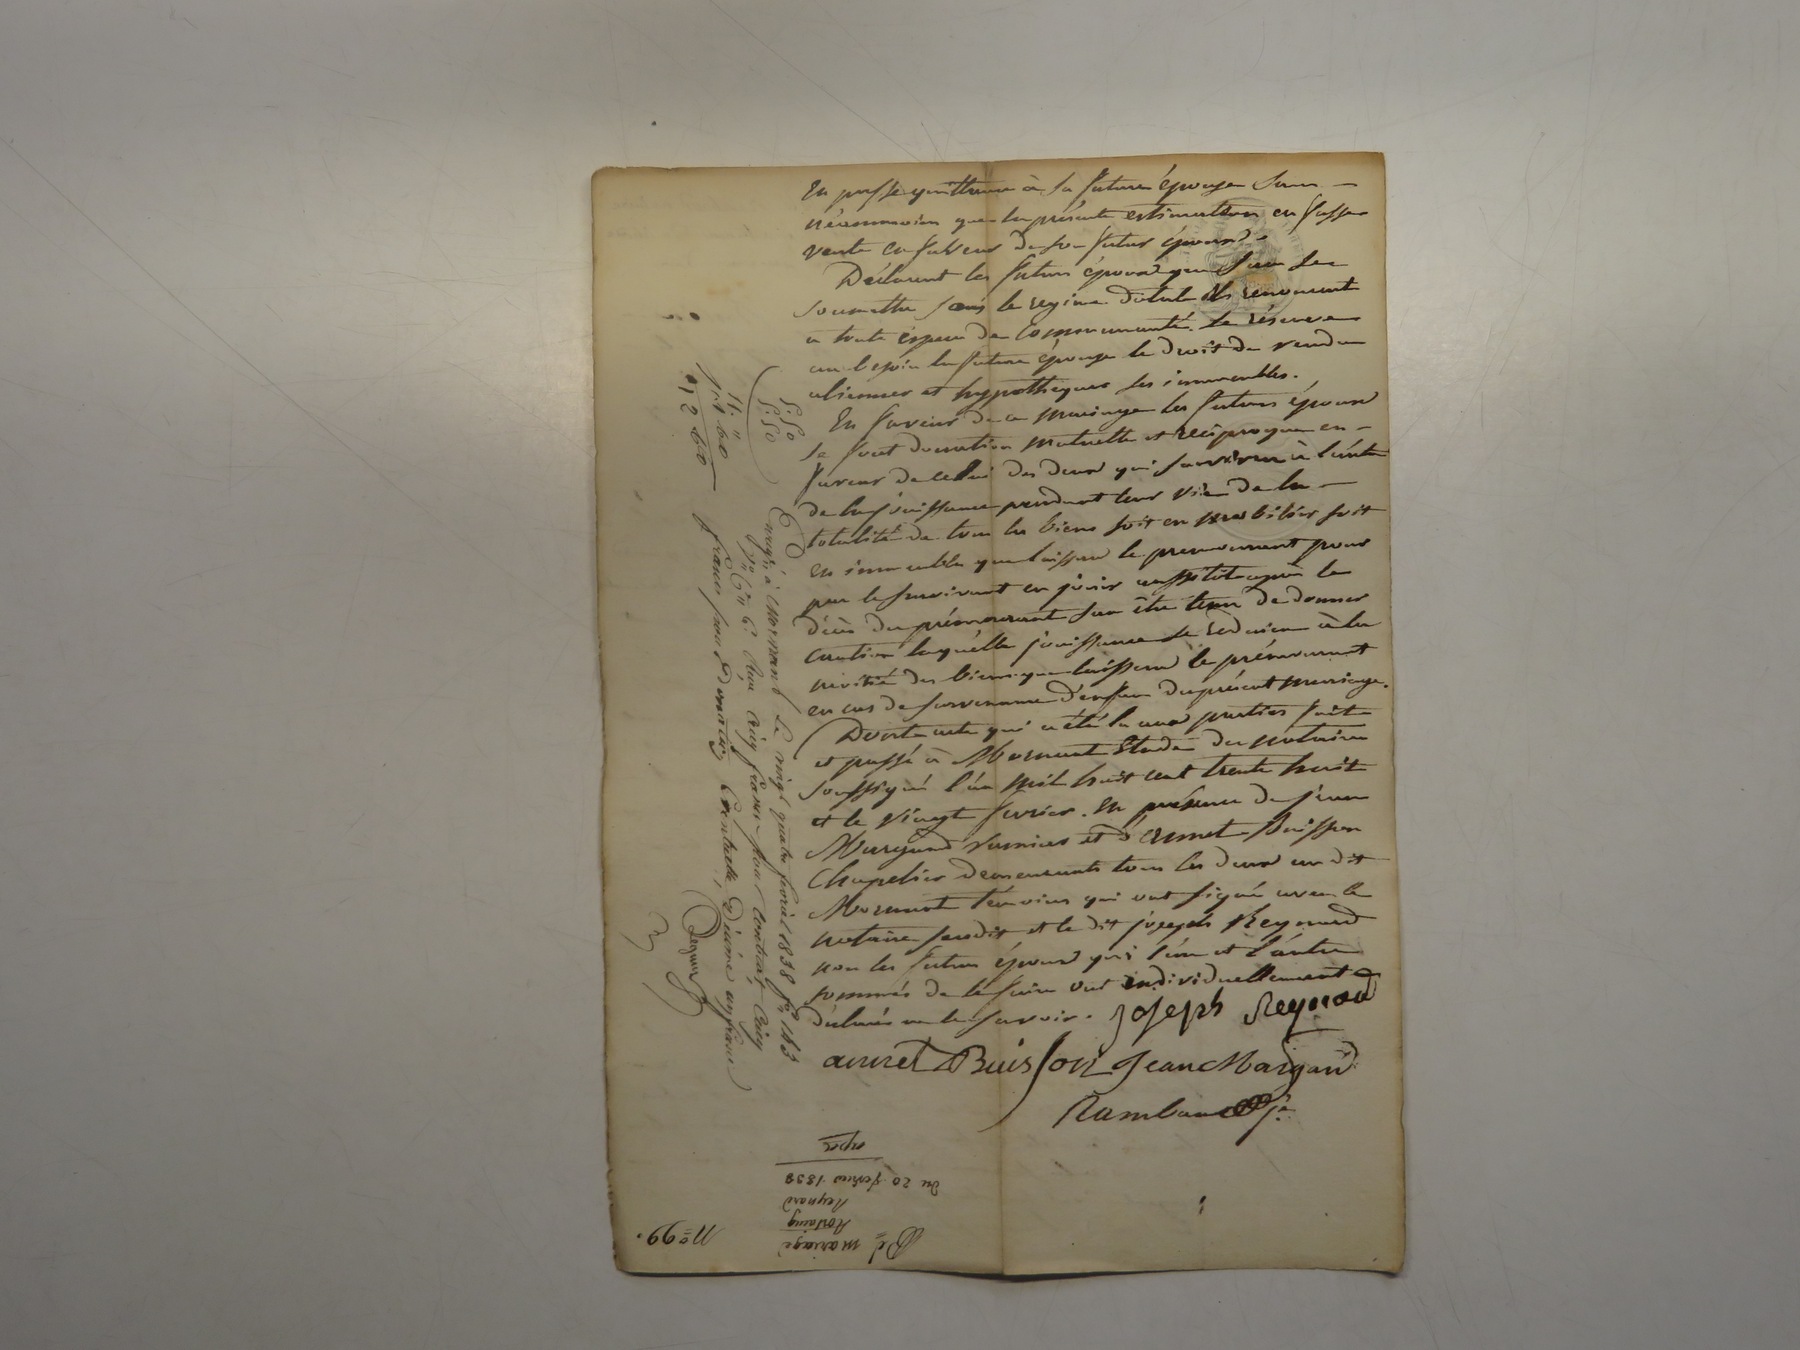 En passe quittance à sa future épouse sans
néanmoins que la présente estimation en fasse
vente en faveur de son futur époux.
Déclarent les futurs époux que sur se
soumettre sous le régime dotal ils renoncent
a toute espece de communauté. se réserve
au besoin la future épouse le droit de vendre
aliener et hypothequer ses immeubles.
En faveur de ce mariage les futurs époux
se font donation mutuelle et reciproque en
faveur de celui des deux qui survivra à l'autre
de la jouissance pendant leur vie de la
totalité de tous les biens soit en mobilier soit
en immeubles que laissera le premourant pour
par le survivant en jouir aussitôt après le
décès du prémourant sans être tenu de donner
caution laquelle jouissance se reduira à la
moitié des biens que laissera le prémourant
en cas de survenance d'enfans du présent mariage.
Dont acte qui a été lu aux parties fait
et passé à Mornant Etude du notaire
soussigné l'an mil huit cent trente huit
et le vingt fevrier. en présence de jean
Margand et d'annet Buisson
Chapelier demeurants tous les deux au dit
Mornant témoins qui ont signé avec le
notaire susdit et le dit joseph Reynard
non les futurs époux qui l'un et l'autre
sommés de le faire ont individuellement
déclaré ne le savoir. Joseph Reynard
annet Buisson Jean Margand
Rambaud
5.50
5.50
11."
1.60
12.60
Enregé à Mornant le vingt quatre fevrier 1838 fo 163
Reçu cinq francs pour contrat cinq
francs pour Donation Eventuelle, Décime un franc
No 99.
Del mariage
Reynard
Du 20 fevrier 1838